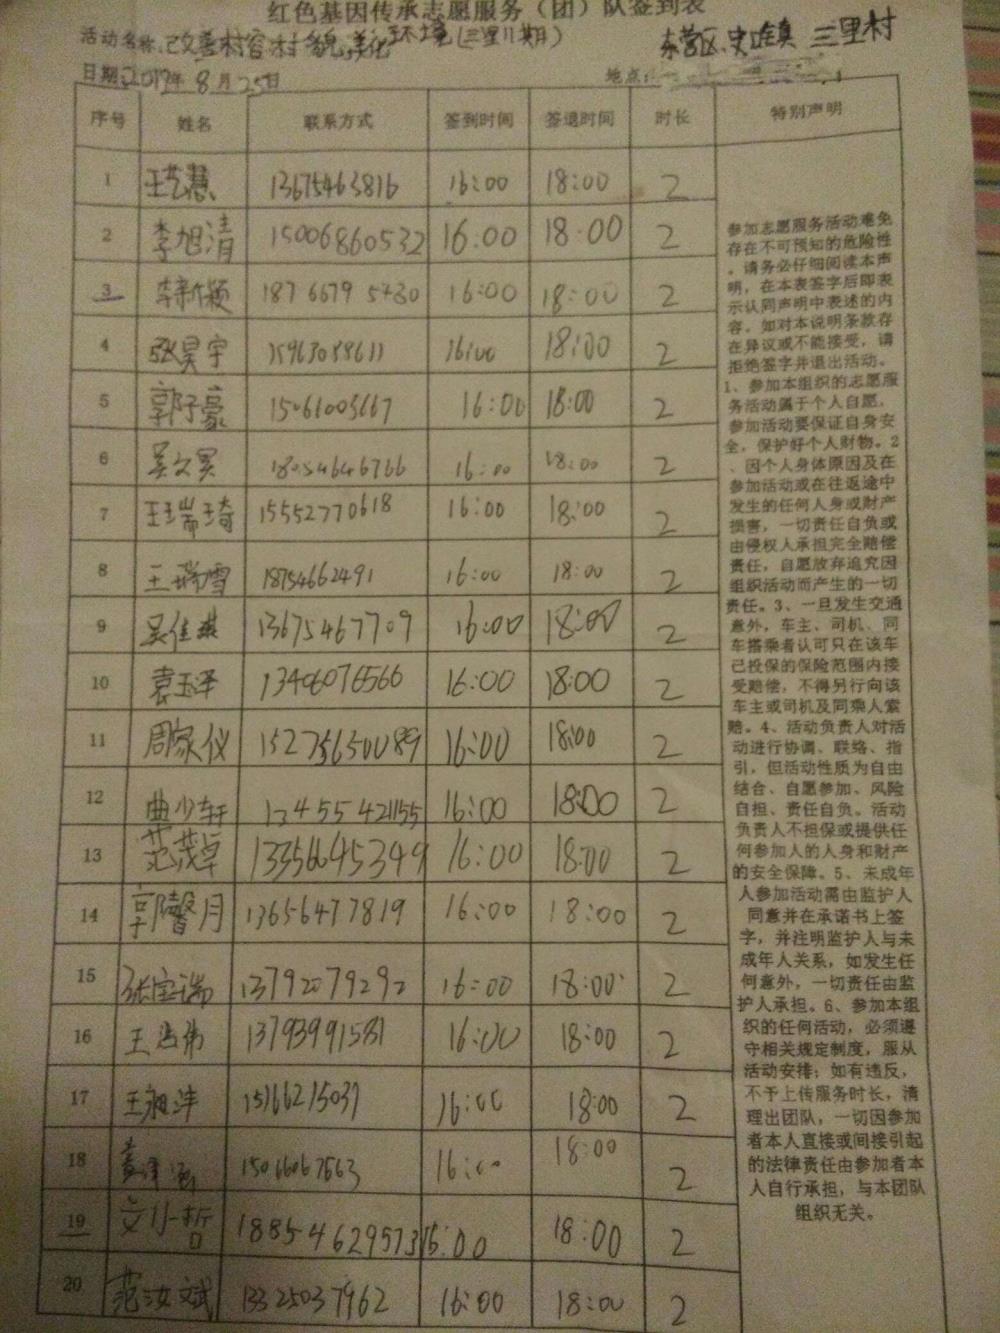 红色基因传承志愿服务（团）队签到表
活动名称：改善村容村貌美化环境(三里儿期) 东营区 史口镇 三里村
日期：2017年8月25日 地点：
序号 姓名 联系方式 签到时间 签退时间 时长 特别声明
1 王艺慧 13675463816 16:00 18:00 2
2 李旭清 15006860532 16:00 18:00 2
3 李新颖 18766795430 16:00 18:00 2
4 张昊宇 15963088611 16:00 18:00 2
5 郭子豪 15061003667 16:00 18:00 2
6 吴文昊 18054646766 16:00 18:00 2
7 王瑞琦 15552770618 16:00 18:00 2
8 王瑞雪 18754662491 16:00 18:00 2
9 吴佳琪 13675467709 16:00 18:00 2
10 袁玉泽 13406076566 16:00 18:00 2
11 周家仪 15275650089 16:00 18:00 2
12 曲少轩 16:00 18:00 2
13 范茂卓 13356645349 16:00 18:00 2
14 郭馨月 13656477819 16:00 18:00 2
15 张宝瑞 13792079292 16:00 18:00 2
16 王浩伟 13793991581 16:00 18:00 2
17 王 15166215037 16:00 18:00 2
18 15066067563 16:00 18:00 2
19 文小哲 18854629573 16:00 18:00 2
20 范汝斌 13325037962 16:00 18:00 2
参加志愿服务活动难免
存在不可预知的危险性
，请务必仔细阅读本声
明，在本表签字后即表
示认同声明中表述的内
容。如对本说明条款存
在异议或不能接受，请
拒绝签字并退出活动。
1、参加本组织的志愿服
务活动属于个人自愿，
参加活动要保证自身安
全，保护好个人财物。2
、因个人身体原因及在
参加活动或在往返途中
发生的任何人身或财产
损害，一切责任自负或
由侵权人承担完全赔偿
责任，自愿放弃追究因
组织活动而产生的一切
责任。3、一旦发生交通
意外，车主、司机、同
车搭乘者认可只在该车
已投保的保险范围内接
受赔偿，不得另行向该
车主或司机及同乘人索
赔。4、活动负责人对活
动进行协调、联络、指
引，但活动性质为自由
结合、自愿参加、风险
自担、责任自负。活动
负责人不担保或提供任
何参加人的人身和财产
的安全保障。5、未成年
人参加活动需由监护人
同意并在承诺书上签
字，并注明监护人与未
成年人关系，如发生任
何意外，一切责任由监
护人承担。6、参加本组
织的任何活动，必须遵
守相关规定制度，服从
活动安排；如有违反，
不予上传服务时长，清
理出团队，一切因参加
者本人直接或间接引起
的法律责任由参加者本
人自行承担，与本团队
组织无关。